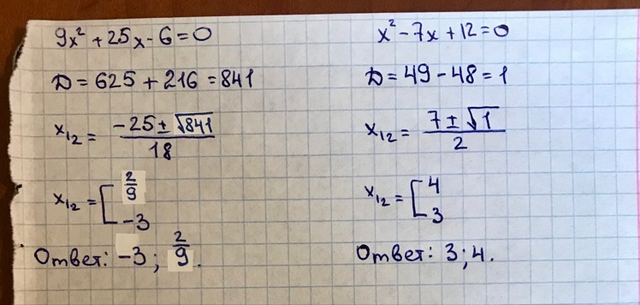 9x² + 25x - 6 = 0
D = 625 + 216 = 841
x₁₂ = (-25 ± √841) / 18
x₁₂ = [ 2/9
-3
Ответ: -3; 2/9.
x² - 7x + 12 = 0
D = 49 - 48 = 1
x₁₂ = (7 ± √1) / 2
x₁₂ = [ 4
3
Ответ: 3; 4.